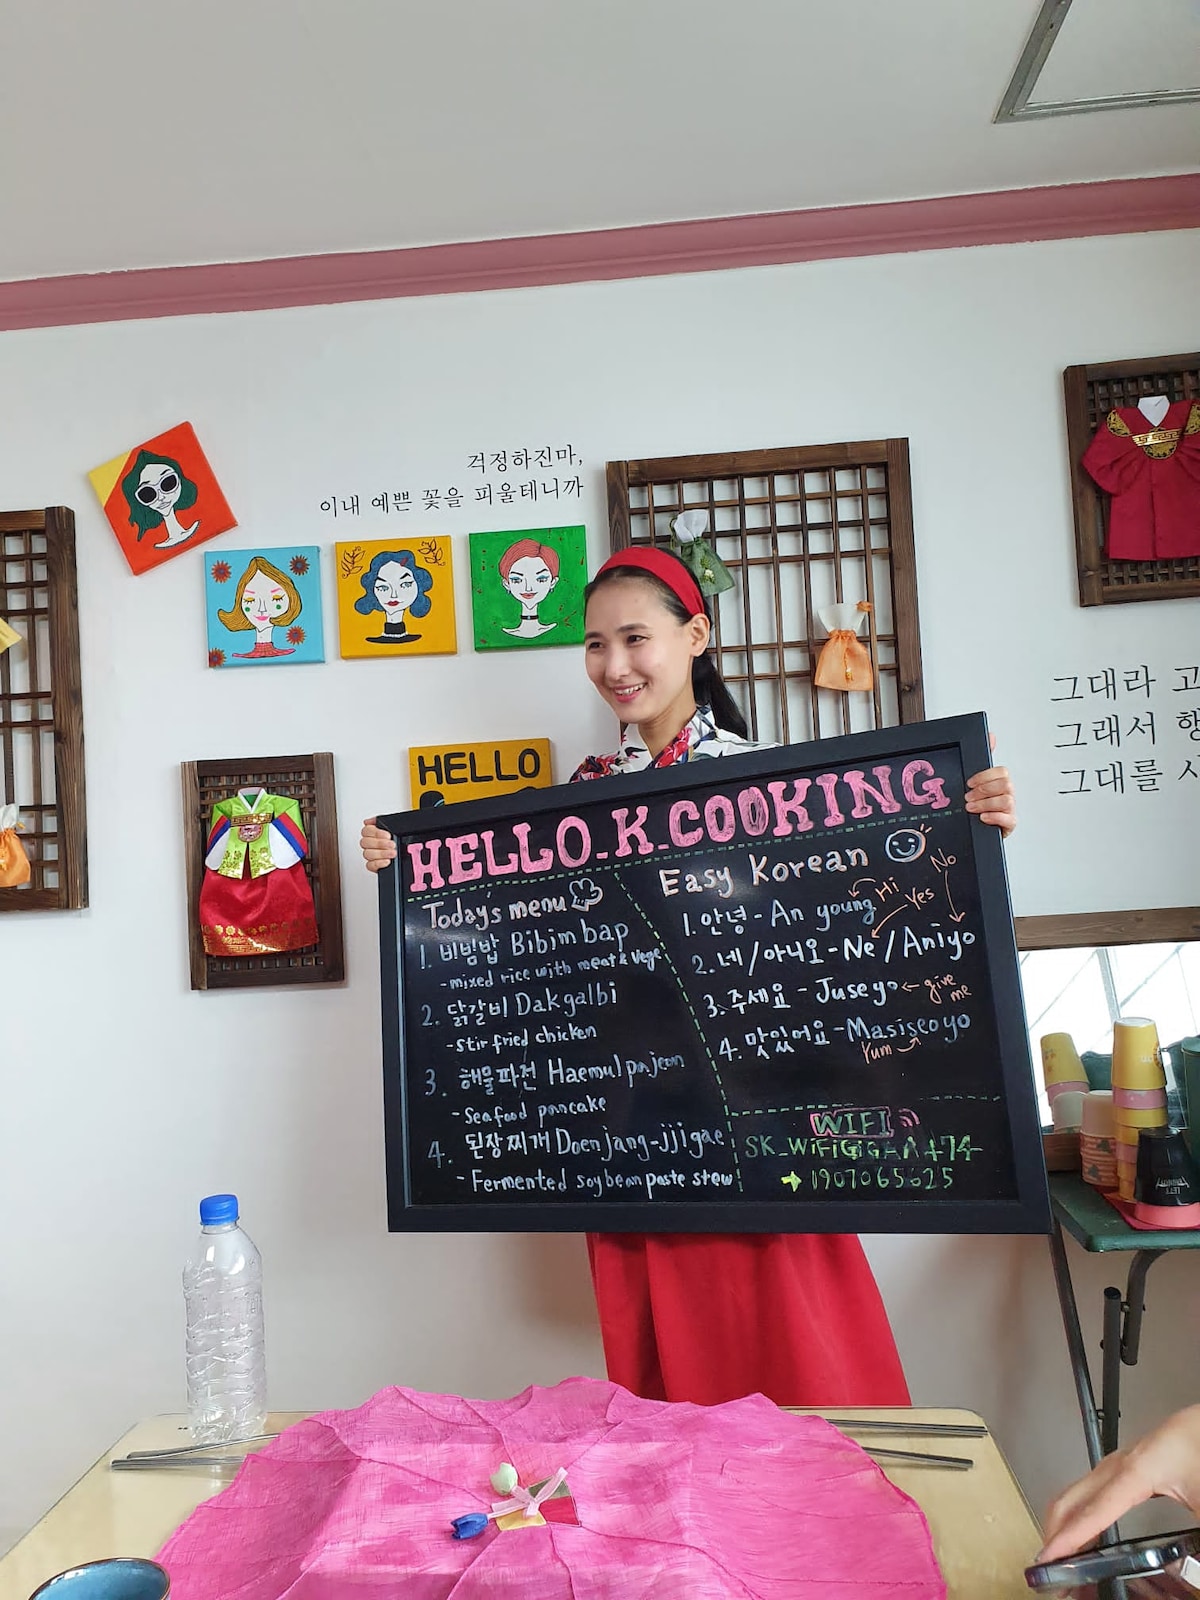 걱정하진마,
이내 예쁜 꽃을 피울테니까
그대라
그래서
그대를
HELLO
HELLO_K_COOKING
Today's menu
1. 비빔밥 Bibimbap
- mixed rice with meat & vege
2. 닭갈비 Dakgalbi
- stir fried chicken
3. 해물파전 Haemul pajeon
- Seafood pancake
4. 된장찌개 Doenjang-jjigae
- Fermented soybean paste stew
Easy Korean
1. 안녕 - An young Hi
2. 네/아니요 - Ne / Aniyo Yes No
3. 주세요 - Juseyo ← give me
4. 맛있어요 - Masisseoyo
Yum
WIFI
1907065625